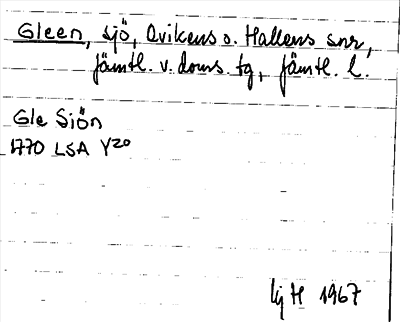 Gleen, sjö, Ovikens o. Hallens snr,
Jämtl. v. doms. tg, Jämtl. l.
Gle Siön
1770 LSA Y20
Kj H 1967